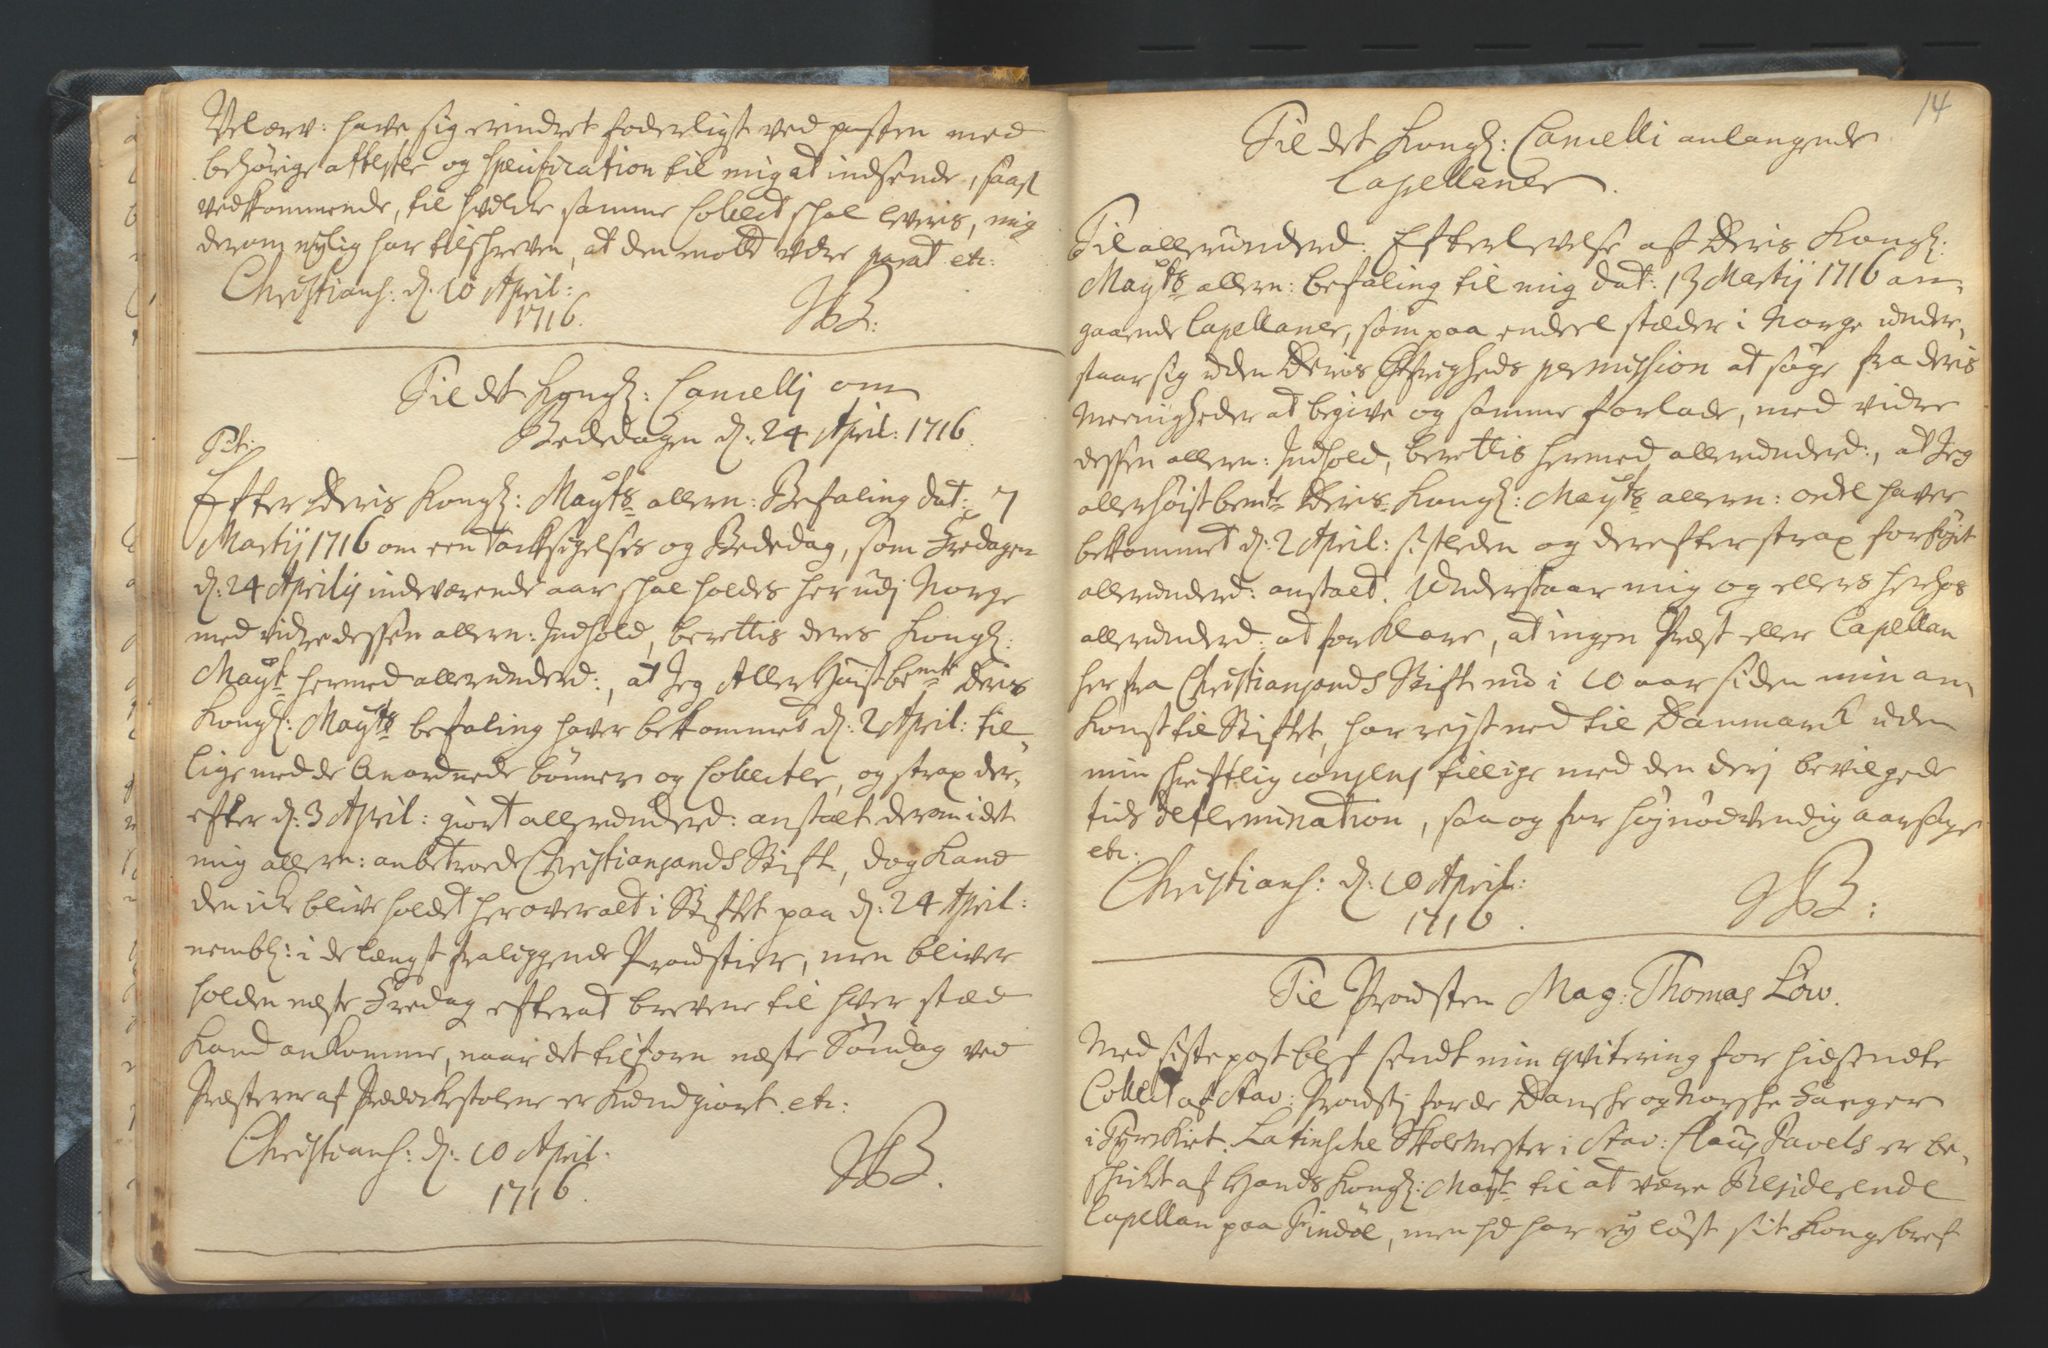 Velærv: have sig erindret foderligst ved posten med
behörige attester og specification til mig at indsende, saasom
vedkommende, til hvilke samme Collect skal leveris, mig
derom nylig har tilskreven, at den motte være parat etc:
Christians: d. 10 April:
1716.
JB:
Til det Kongl: Cancellj om
Bededagen d: 24 April: 1716.
Pt:
Efter Deris Kongl: Mayts allern: Befaling dat: 7
Martij 1716 om een Tacksigelses og Bededag, som Fredagen
d: 24 Aprilij indeværende aar skal holdes her udj Norge
med videre dessen allern: Indhold, berettis deres Kongl:
Mayt hermed allerunderd:, at Jeg Allerhöistbemte Deris
Kongl: Mayts befaling haver bekommet d: 2 April: til-
lige med de Anordnede bönner og Collecter, og strax der-
efter d: 3 April: giort allerunderd: anstalt derom i det
mig allern: anbetroede Christiansands Stift, dog kand
den icke blive holdet her over alt i Stiftet paa d: 24 April:
nembl: i de længst fraliggende Provstier, men bliver
holden næste Fredag efter at brevene til hver stæd
kand ankomme, naar det tilforn næste Söndag ved
Præsterne af Prædickestolene er kundgiort. etc:
Christians: d: 10 April.
1716.
JB.
14
Til det Kongl: Cancelli anlangende
Capellaner.
Til allerunderd: Efterlevelse af Deris Kongl:
Mayts allern: befaling til mig dat: 13 Martij 1716 an-
gaaende Capellaner, som paa endeel stæder i Norge under-
staar sig uden Deris Öfrigheds permission at söge fra deris
Meenigheder at begive og samme forlade, med videre
dessen allern: Indhold, berettis hermed allerunderd:, at Jeg
allerhöistbemte Deris Kongl: Mayts allern: ordre haver
bekommet d: 2 April: sistleden og derefter strax forföyet
allerunderd: anstalt. Understaar mig og ellers herhos
allerunderd: at forklare, at ingen Præst eller Capellan
her fra Christiansands Stift nu i 10 aar siden min an-
komst til Stiftet, har reyst ned til Danmarck uden
min skriftlig consens tillige med den derj bevilgede
tids determination, saa og for höjnödvendig aarsage
etc:
Christians: d: 10 April:
1716.
JB:
Til Provsten Mag: Thomas Löw.
Med siste post blef sendt min qvitering for hidsendte
Collect af Stav: Provstj for de Danske og Norske Fanger
i Tyrckiet. Latinsche Skolemester i Stav: Claus Pavels er be-
skicket af Hands Kongl: Mayt til at være Residerende
Capellan paa Findöe, men hd har ey löst sit kongebref